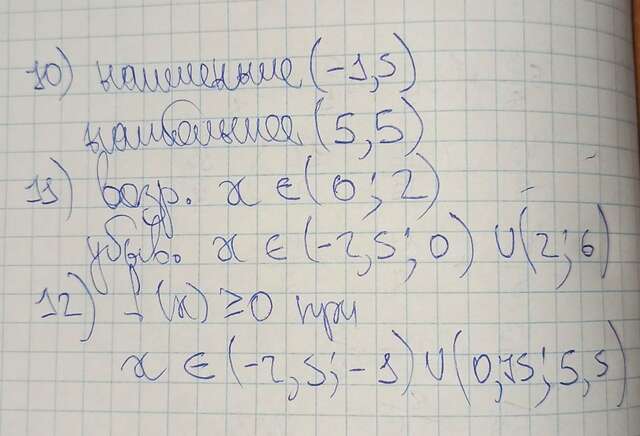 10) наименьшее (-1,5)
наибольшее (5,5)
11) возр. x ∈ (0; 2)
убыв. x ∈ (-2,5; 0) ∪ (2; 6)
12) f(x) ≥ 0 при
x ∈ (-2,5; -1) ∪ (0,75; 5,5)